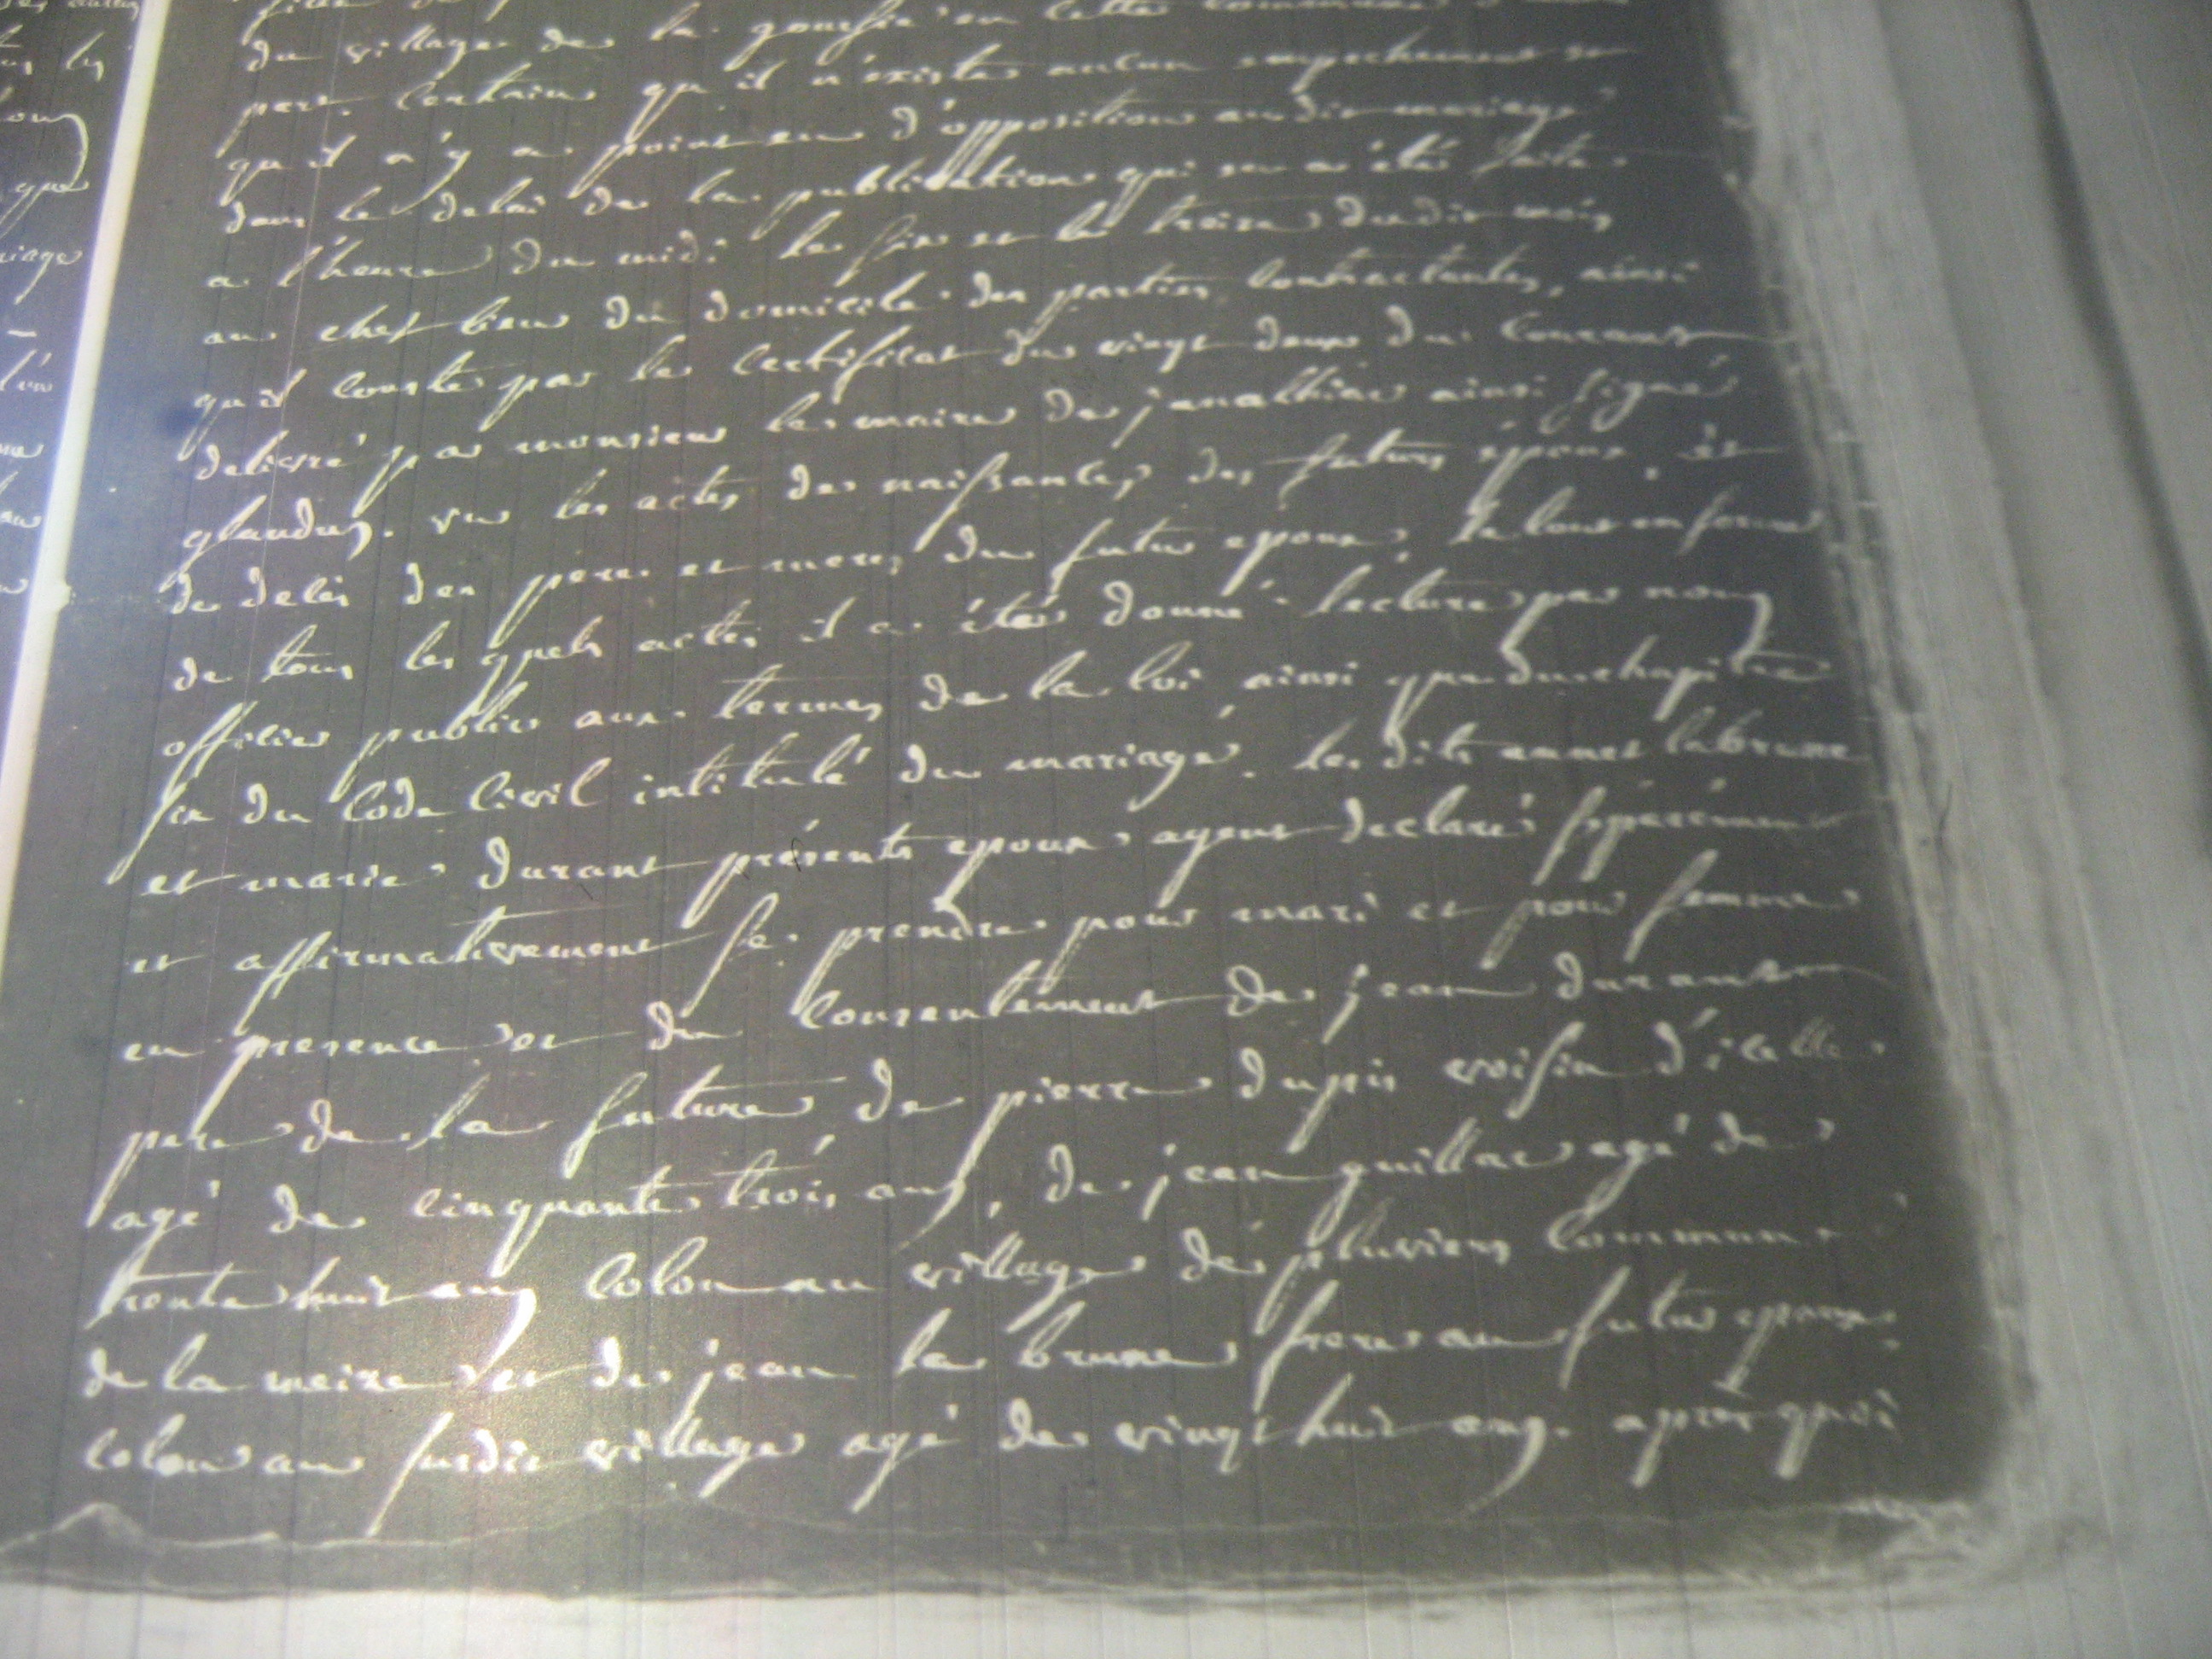 du village de la en cette commune
part. Certain qu'il n'existe aucun empechement et
qu'il n'y a point eu d'opposition audit mariage
dans le delai de la publication qui en a été faite
a l'heure du midi le six et le treize dudit mois
au chef lieu du domicile des parties contractantes, ainsi
qu'il conste par le certificat du vingt deux du courant
delivré par monsieur le maire de jenalhiac ainsi signé
glandus. vu les actes de naissances des futurs époux, et
de deces des pere et mere du futur epoux, le tout en forme
de tous les quels actes il a été donné lecture par nous
officier public aux termes de la loi ainsi que du chapitre
six du Code Civil intitulé du mariage. les dits annet labrune
et marie durant présents epoux ayant declaré séparément
et affirmativement se prendre pour mari et pour femme
en presence et du consentement de jean durant
pere de la future de pierre dupis voisin d'icelle
agé de cinquante trois ans, de jean quillac agé de
trente huit ans colon au village de pluviers commune
de la meize et de jean la brune frere au futur epoux
colon au susdit village agé de vingt huit ans. après quoi